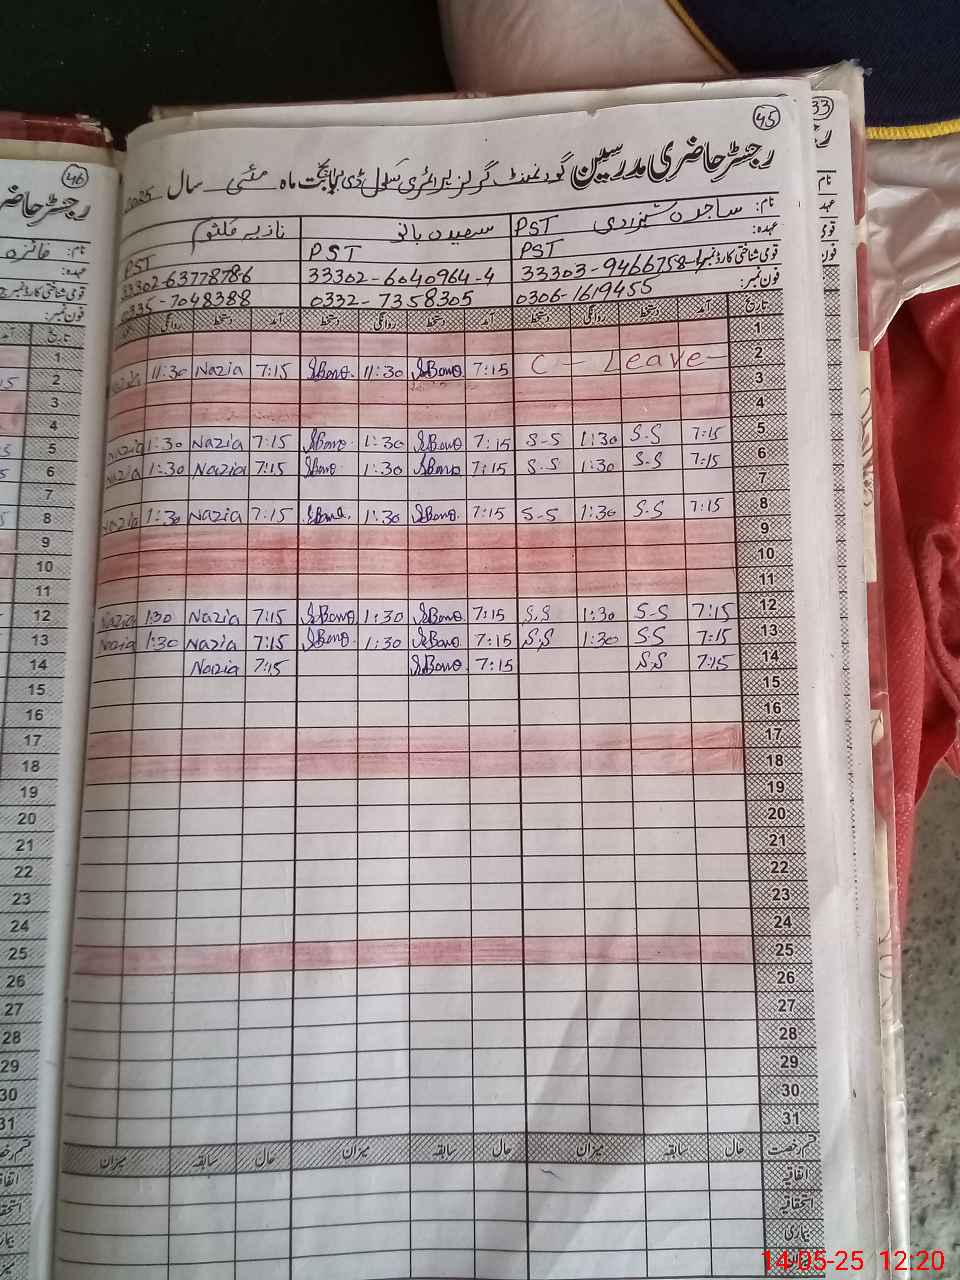 45
رجسٹر حاضری مدرسین گورنمنٹ گرلز پرائمری سکول بابت ماہ مئی سال 2025
نام: ساجدہ شہزادی
سعیدہ بانو
نازیہ کلثوم
عہدہ: PST PST PST PST
قومی شناختی کارڈ نمبر: 33302-6040964-4 33302-6377878-6
فون نمبر: 0306-1619455 0332-7358305 0335-7048388
تاریخ آمد دستخط روانگی دستخط آمد دستخط روانگی دستخط آمد دستخط روانگی
1
2 C - Leave - 7:15 S.Bano 11:30 S.Bano 7:15 Nazia 11:30 Nazia
3
4
5 7:15 S-S 1:30 S-S 7:15 S.Bano 1:30 S.Bano 7:15 Nazia 1:30 Nazia
6 7:15 S-S 1:30 S-S 7:15 S.Bano 1:30 S.Bano 7:15 Nazia 1:30 Nazia
7
8 7:15 S-S 1:30 S-S 7:15 S.Bano 1:30 S.Bano 7:15 Nazia 1:30 Nazia
9
10
11
12 7:15 S-S 1:30 S.S 7:15 S.Bano 1:30 S.Bano 7:15 Nazia 1:30 Nazia
13 7:15 SS 1:30 S.S 7:15 S.Bano 1:30 S.Bano 7:15 Nazia 1:30 Nazia
14 7:15 S.S 7:15 S.Bano 7:15 Nazia
15
16
17
18
19
20
21
22
23
24
25
26
27
28
29
30
31
قسم رخصت حال سابقہ میزان حال سابقہ میزان حال سابقہ میزان
اتفاقیہ
استحقاقیہ
بیماری
46
رجسٹر حا
نام: فائزہ
عہدہ:
قومی شناختی کارڈ نمبر:
فون نمبر:
تاریخ آمد
1
2
3
4
5
6
7
8
9
10
11
12
13
14
15
16
17
18
19
20
21
22
23
24
25
26
27
28
29
30
31
33
14-05-25 12:20